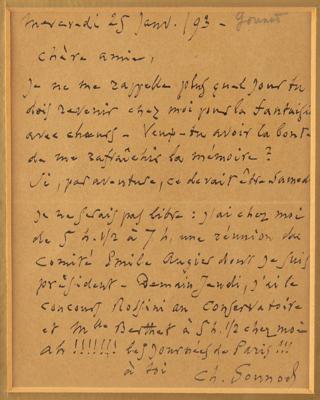 Mercredi 25 Janv. /93 - Gounod
Chère amie,
Je ne me rappelle plus quel jour tu
dois revenir chez moi pour la Fantaisie
avec chœurs - Veux-tu avoir la bonté
de me rafraîchir la mémoire ?
Si, par aventure, ce devait être Samedi
je ne serais pas libre : j'ai chez moi
de 5 h. 1/2 à 7 h, une réunion du
Comité Emile Augier dont je suis
président - Demain Jeudi, j'ai le
concours Rossini au Conservatoire
et Mlle Berthet à 5 h. 1/2 chez moi
ah !!!!!!! les Journées de Paris !!!
à toi
Ch. Gounod